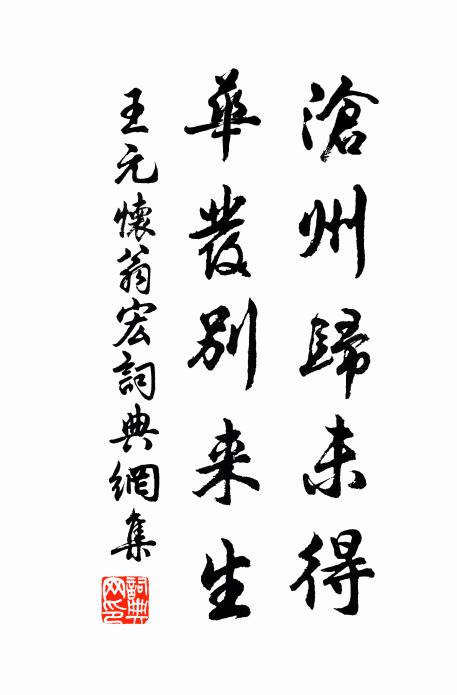 滄州歸未得
華發別来生
王元懷翁宏詞典網集
詞典網印